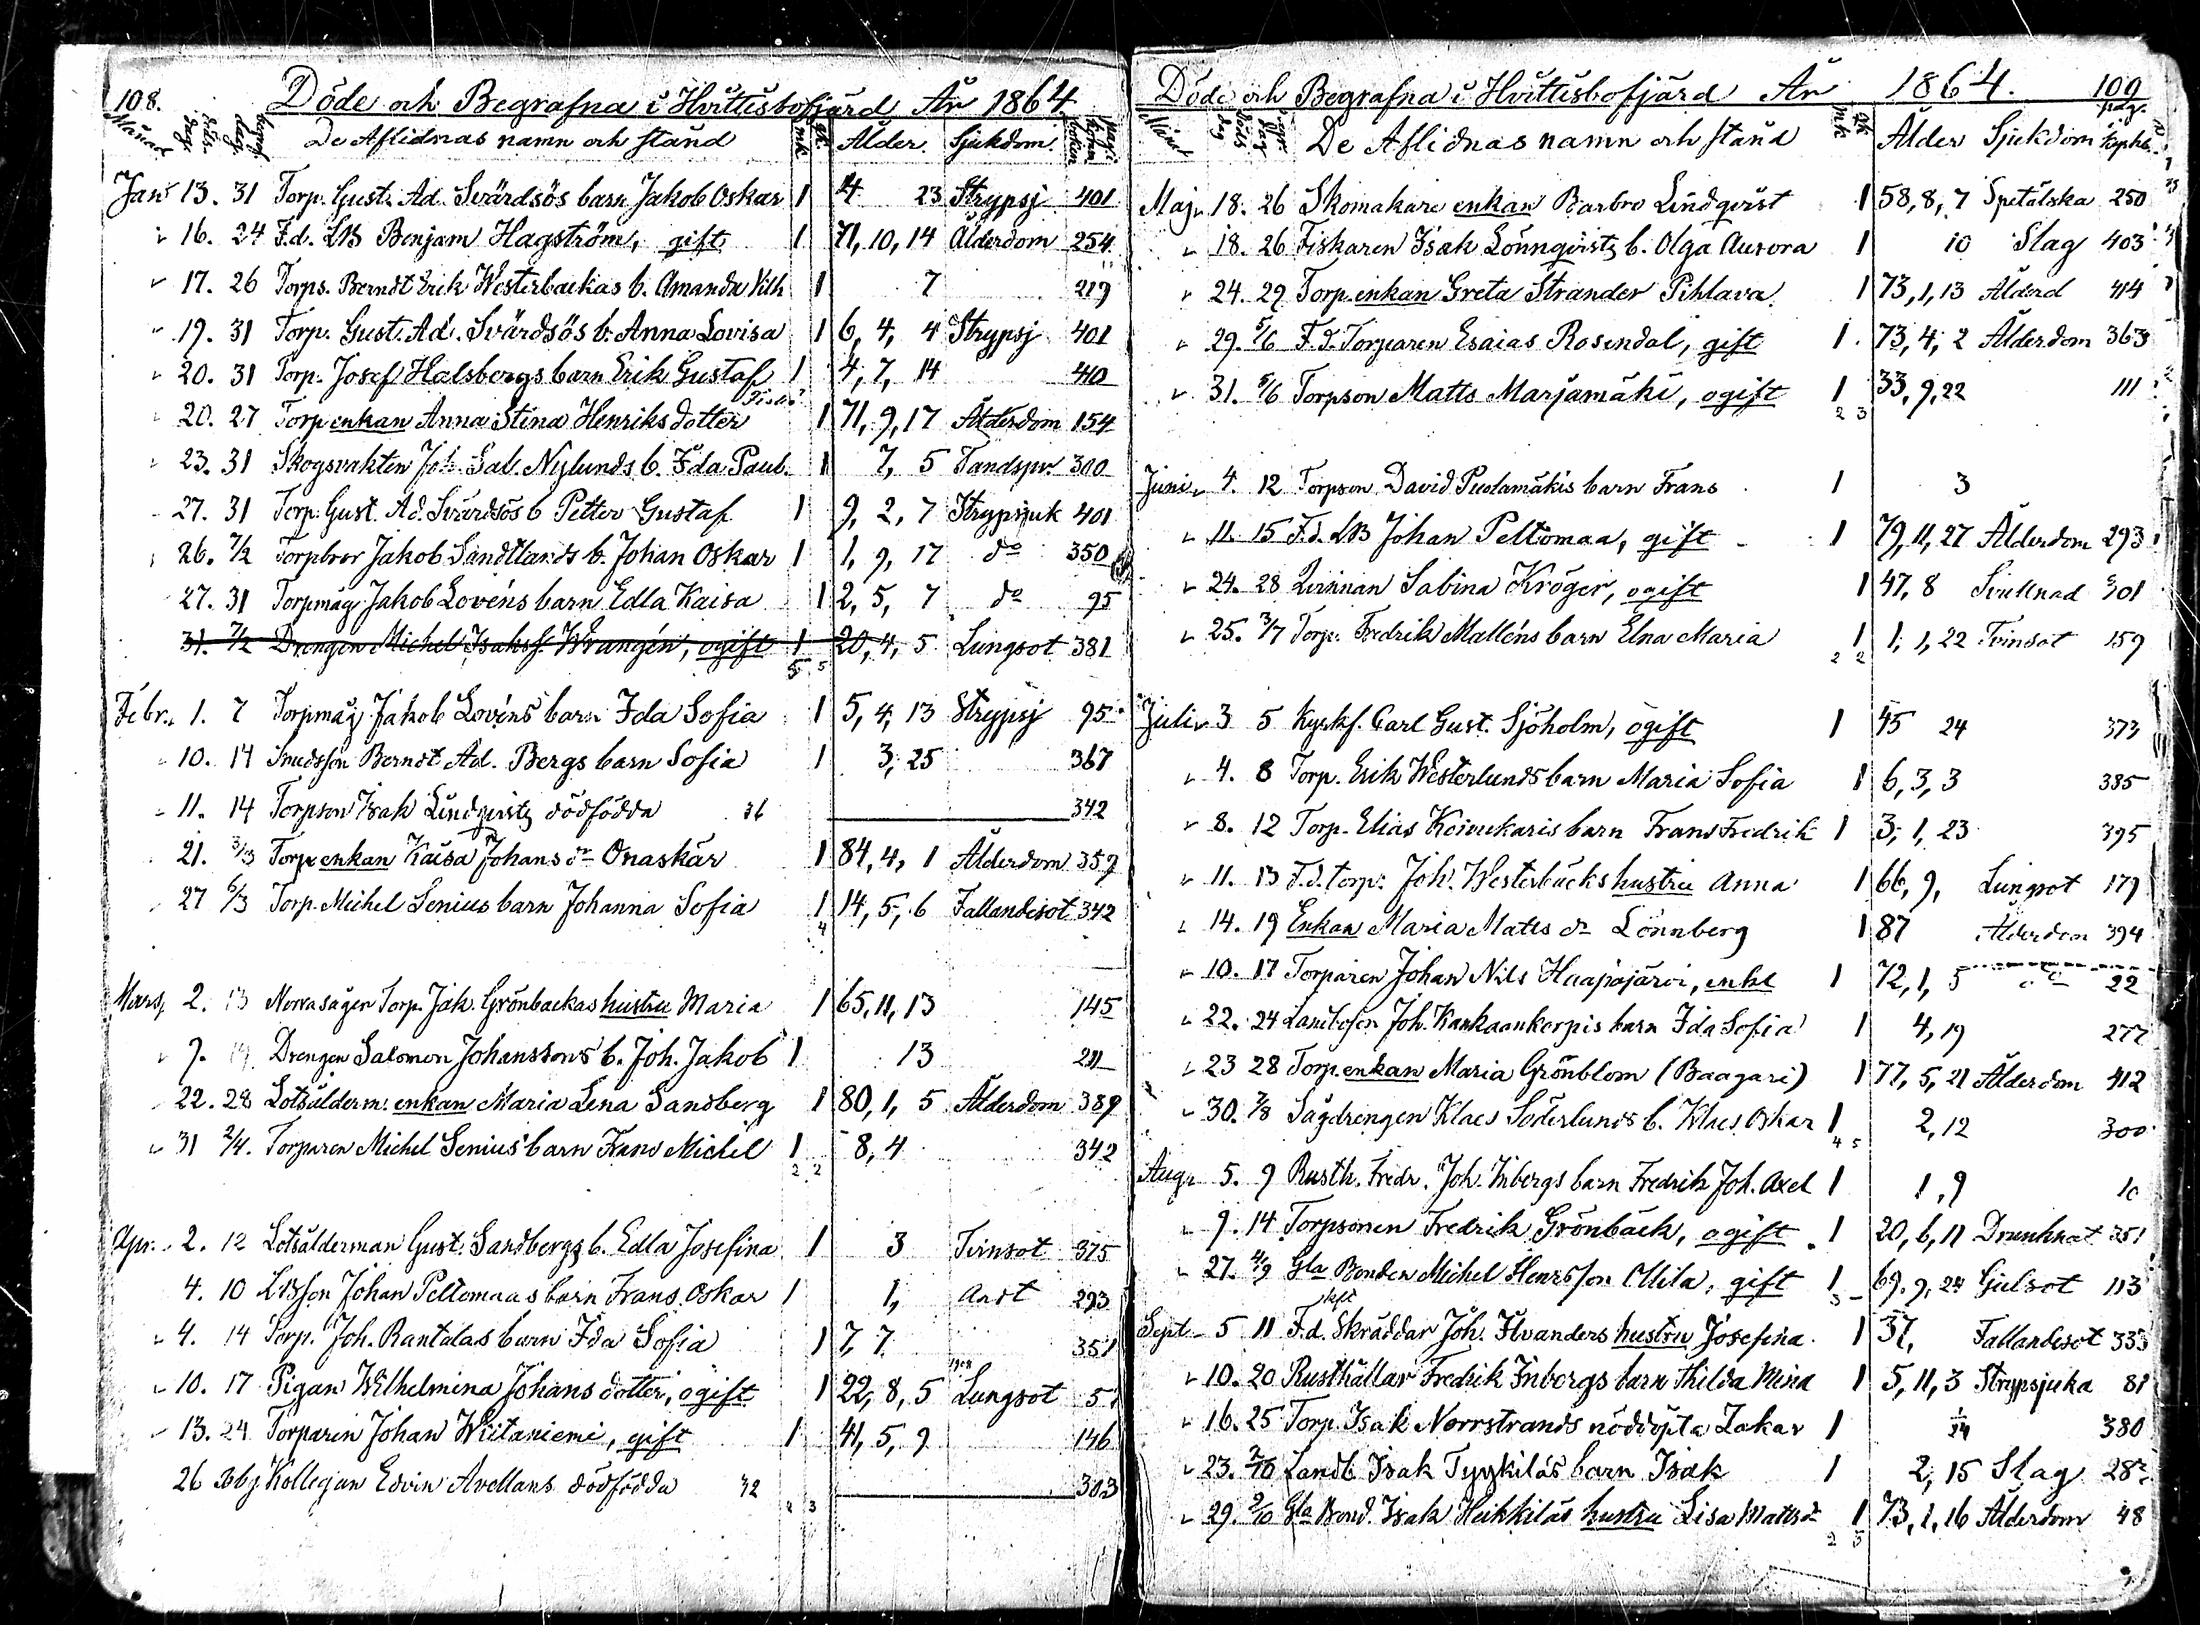 108. Döde och Begrafna i Hvittisbofjärd År 1864
Månad De Aflidnas namn och stånd mk qk Ålder. Sjukdom.
Jan 13. 31 Torp. Gust. Ad. Svärdsös barn Jakob Oskar 1 4 23 Strypsj. 401
" 16. 24 F.d. LB Benjam Hagström, gift 1 71, 10, 14 Ålderdom 254
" 17. 26 Torps. Berndt Erik Westerbackas b. Amanda Vilh 1 7 219
" 19. 31 Torp. Gust. Ad. Svärdsös b. Anna Lovisa 1 6, 4, 4 Strypsj 401
" 20. 31 Torp. Josef Halsbergs barn Erik Gustaf 1 4, 7, 14 410
" 20. 27 Torpenkan Anna Stina Henriksdotter 1 71, 9, 17 Ålderdom 154
" 23. 31 Skogsvakten Joh. Sal. Nylunds b. Ida Paul. 1 7, 5 Tandspr. 300
" 27. 31 Torp. Gust. Ad. Svärdsös b Petter Gustaf 1 9, 2, 7 Strypsjuk 401
" 26. 7/2 Torpbror Jakob Sandtlands b. Johan Oskar 1 1, 9, 17 do 350
27. 31 Torpmåg Jakob Lovéns barn Edla Kaisa 1 2, 5, 7 do 95
31. 7/2 Drengen Michel Isaksf. Wrangén, ogift 1 20, 4, 5 Lungsot 381
5 5
Febr. 1. 7 Torpmåg Jakob Lovéns barn Ida Sofia 1 5, 4, 13 Strypsj 95
" 10. 14 Smedsson Berndt Ad. Bergs barn Sofia 1 3, 25 367
" 11. 14 Torpson Isak Lindqvists dödfödda 36 342
21. 3/3 Torpenkan Kaisa Johans dr Onaskär 1 84, 4, 1 Ålderdom 359
27 6/3 Torp. Michel Senius barn Johanna Sofia 1 14, 5, 6 Fallandesot 342
4
Mars 2. 13 Norra sågen Torp. Jak. Grönbackas hustru Maria 1 65, 11, 13 145
" 9. Drengen Salomon Johanssons b. Joh. Jakob 1 13 211
22. 28 Lotsålderm. enkan Maria Lena Sandberg 1 80, 1, 5 Ålderdom 389
" 31 2/4. Torparen Michel Senius barn Frans Michel 1 8, 4 342
2 2
Apr. 2. 12 Lotsålderman Gust. Sandbergs b. Edla Josefina 1 3 Tvinsot 375
4. 10 LBson Johan Peltomaas barn Frans Oskar 1 1, Andt 293
" 4. 14 Torp. Joh. Rantalas barn Ida Sofia 1 7, 7 351
" 10. 17 Pigan Wilhelmina Johansdotter, ogift 1 22, 8, 5 Lungsot 5
" 13. 24 Torparen Johan Wiitaniemi, gift 1 41, 5, 9 146
26 Kollegan Edvin Avellans dödfödda 32 303
2 3
Döde och Begrafna i Hvittisbofjärd År 1864. 109
De Aflidnas namn och stånd mk qk Ålder Sjukdom
Maj 18. 26 Skomakare enkan Barbro Lindqvist 1 58, 8, 7 Spetälska 250
" 18. 26 Fiskaren Isak Lönnqvists b. Olga Aurora 1 10 Slag 403
" 24. 29 Torp. enkan Greta Strander Pihlava 1 73, 1, 13 Ålderd 414
" 29. 5/6 F.d. Torparen Esaias Rosendal, gift 1 73, 4, 2 Ålderdom 363
" 31. 5/6 Torpson Matts Marjamäki, ogift 1 33, 9, 22 111
2 3
Juni 4. 12 Torpson David Puolamäkis barn Frans 1 3
" 11. 15 F.d. LB Johan Peltomaa, gift 1 79, 11, 27 Ålderdom 293
" 24. 28 Qvinnan Sabina Kröger, ogift 1 47, 8 Svullnad 301
" 25. 3/7 Torp. Fredrik Malléns barn Elna Maria 1 1, 1, 22 Tvinsot 159
2 2
Juli 3 5 Kyrkf. Carl Gust. Sjöholm, ogift 1 45 24 373
" 4. 8 Torp. Erik Westerlunds barn Maria Sofia 1 6, 3, 3 385
" 8. 12 Torp. Elias Koivukaris barn Frans Fredrik 1 3, 1, 23 395
" 11. 13 F.d. torp. Joh. Westerbäcks hustru Anna 1 66, 9, Lungsot 179
" 14. 19 Enkan Maria Matts dr Lönnberg 1 87 Ålderdom 394
" 10. 17 Torparen Johan Nils Haapajärvi, enkl 1 72, 1, 5 do 22
" 22. 24 Landbosen Joh. Kankaankorpis barn Ida Sofia 1 4, 19 277
" 23 28 Torp. enkan Maria Grönblom (Baagari) 1 77, 5, 21 Ålderdom 412
" 30. 7/8 Sågdrengen Klaes Söderlunds b. Klaes Oskar 1 2, 12 300
4 5
Aug. 5. 9 Rusth. Fredr. Joh. Inbergs barn Fredrik Joh. Axel 1 1, 9 10
" 9. 14 Torpsonen Fredrik Grönbäck, ogift 1 20, 6, 11 Drunknat 351
" 27. 4/9 Gla Bonden Michel Henrsson Ollila, gift 1 69, 9, 24 Gulsot 113
3
Sept. 5 11 F.d. Skräddar Joh. Ilvanders hustru Josefina 1 37, Fallandesot 333
" 10. 20 Rusthållar Fredrik Inbergs barn Hilda Mina 1 5, 11, 3 Strypsjuka 81
" 16. 25 Torp. Isak Norrstrands nöddöpta Zakar 1 1/24 380
" 23. 2/10 Landb. Isak Tyyskiläs barn Isak 1 2, 15 Slag
" 29. 2/10 Gla Bond. Isak Heikkiläs hustru Lisa Mattsdr 1 73, 1, 16 Ålderdom 48
2 3